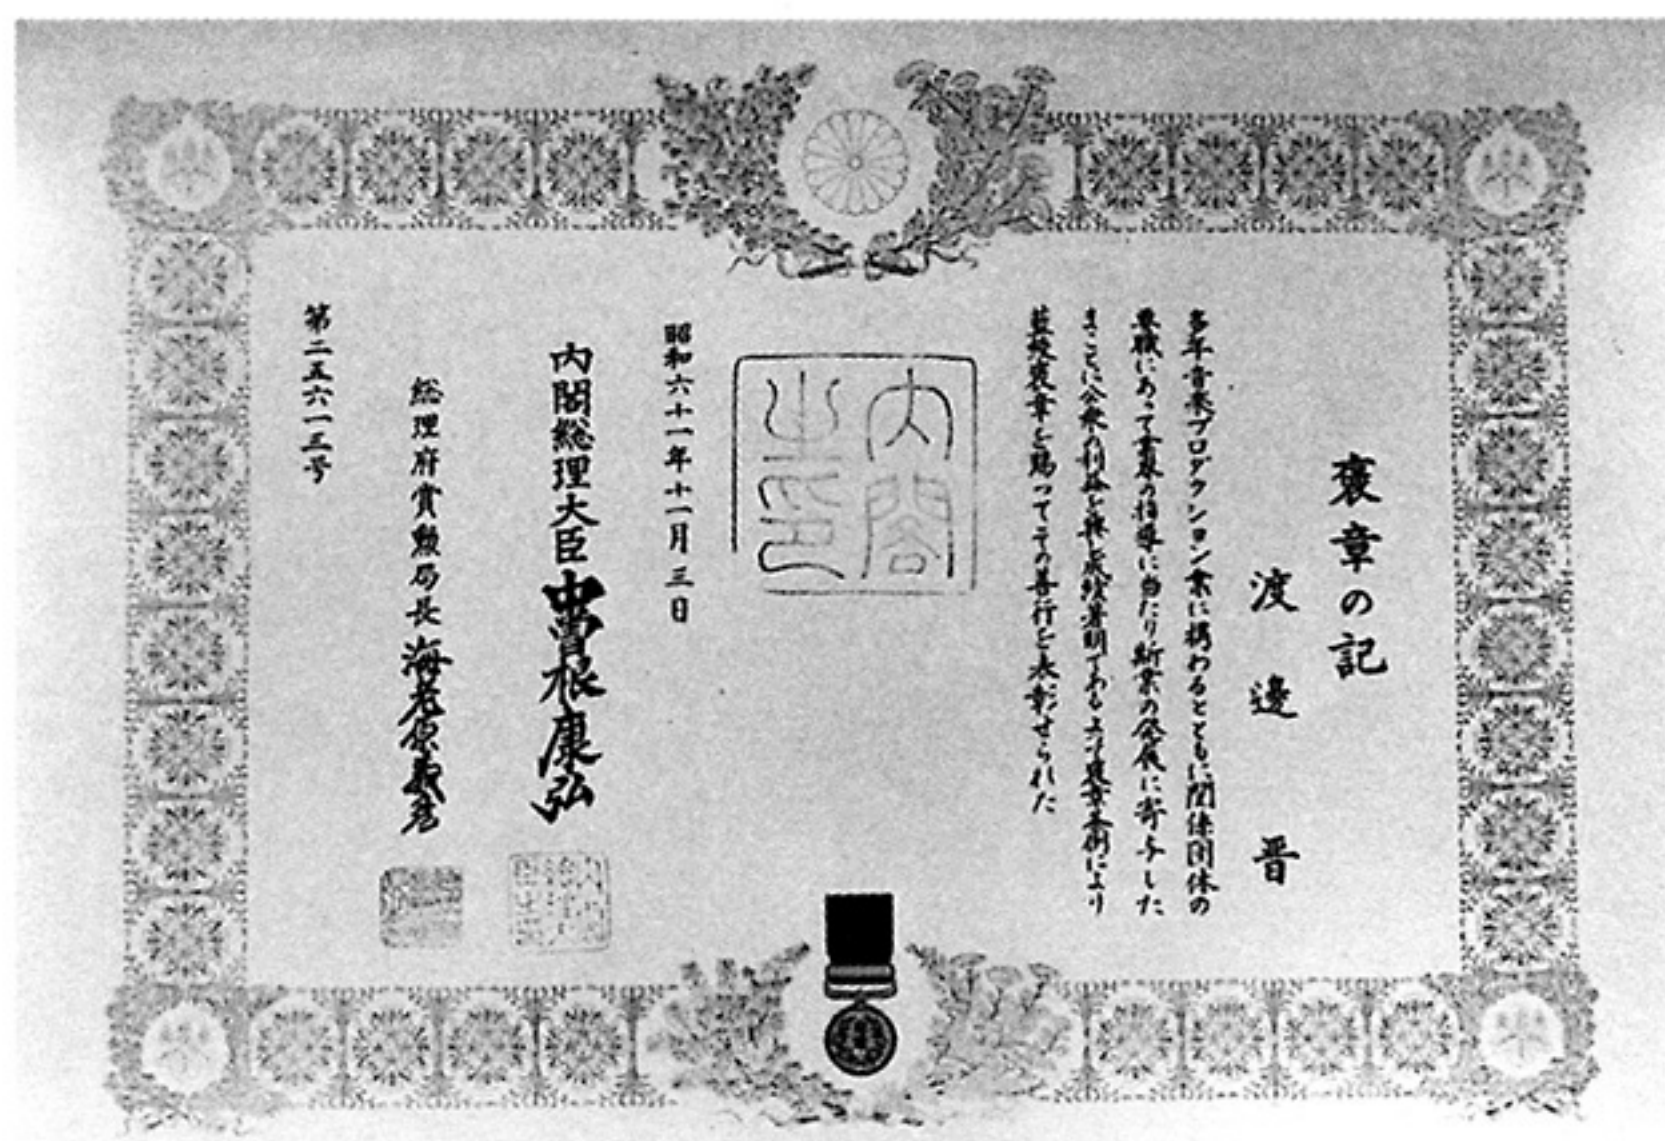 褒章の記
渡邉晋
多年音楽プロダクション業に携わるとともに関係団体の
要職にあって業界の指導に当たり斯業の発展に寄与した
まことに公衆の利益を興し成績著明であるよって褒章条例により
藍綬褒章を賜ってその善行を表彰せられた
内閣
之印
昭和六十一年十一月三日
内閣総理大臣 中曽根康弘
総理府賞勲局長 海老原義彦
第二五六一三号